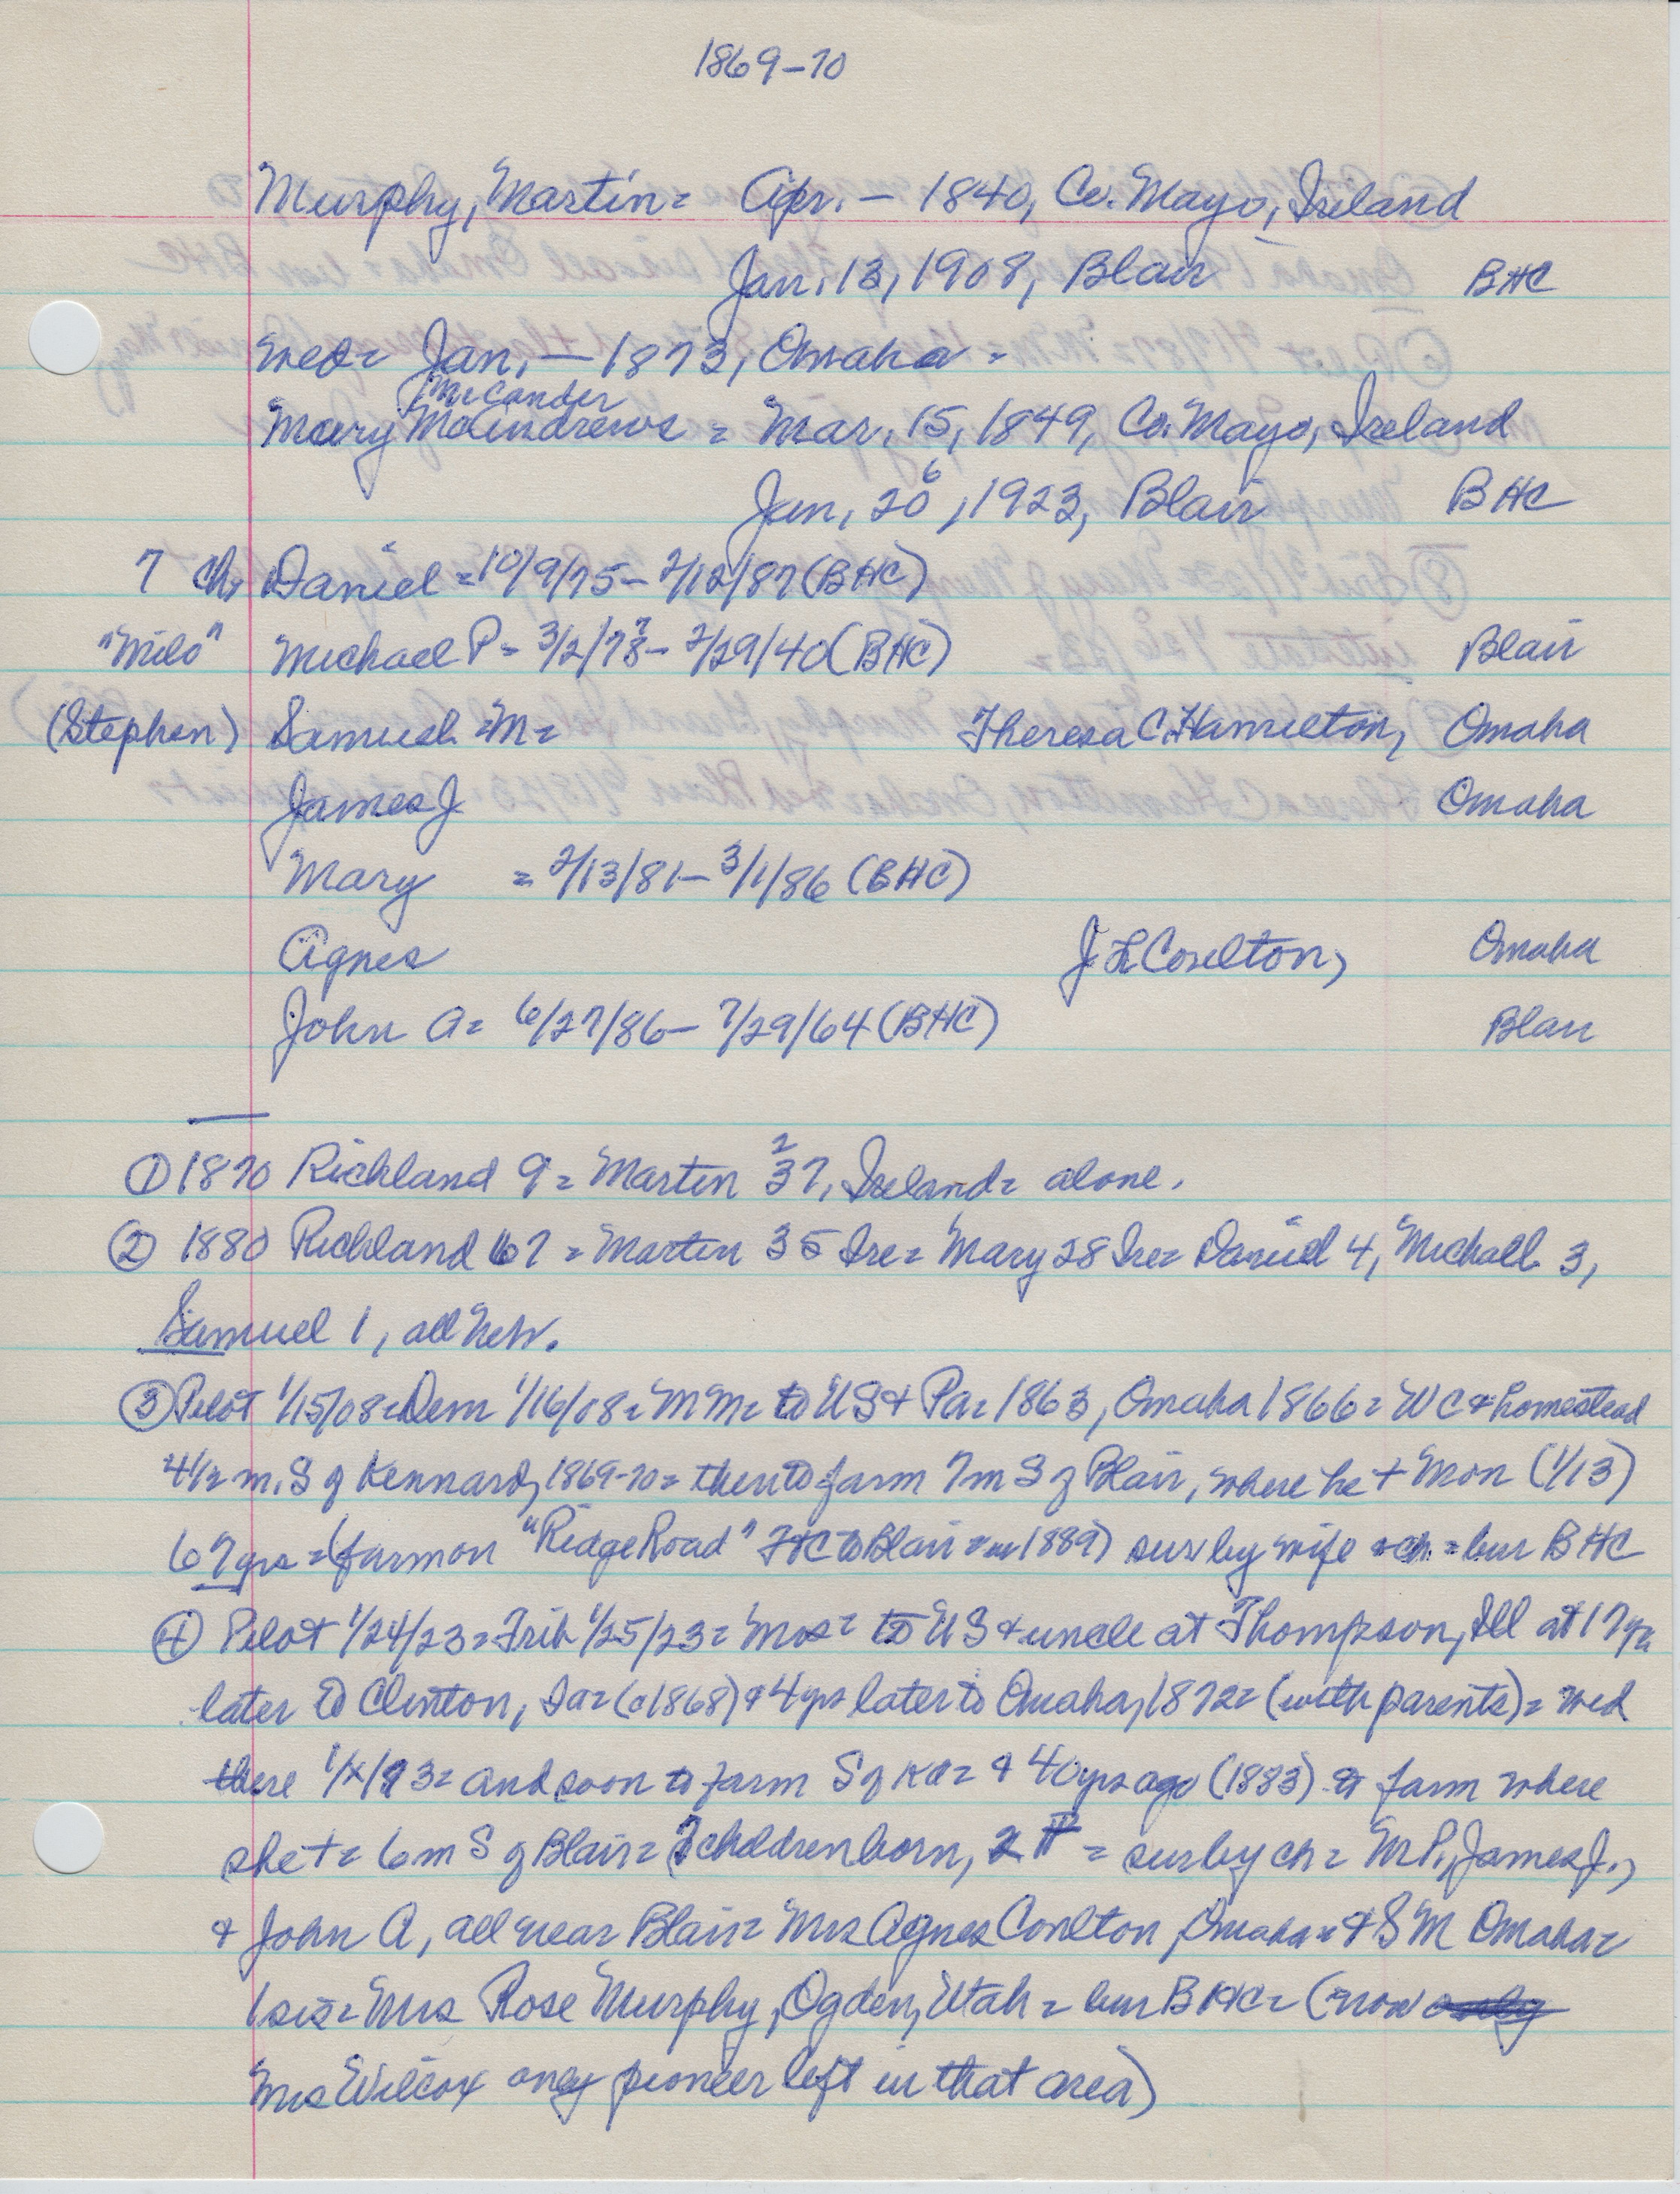 1869-70
Murphy, Martin = Apr. — 1840, Co. Mayo, Ireland
Jan. 13, 1908, Blair BHC
wed = Jan. — 1873, Omaha =
McCander
Mary McAndrews = Mar. 15, 1849, Co. Mayo, Ireland
Jan. 20 6, 1923, Blair BHC
7 ch. Daniel = 10/9/75 - 2/12/87 (BHC)
"Milo" Michael P = 3/2/78 7 - 2/29/40 (BHC) Blair
(Stephen) Samuel M = Theresa C. Hamilton, Omaha
James J. Omaha
Mary = 2/13/81 - 3/1/86 (BHC)
Agnes J L Conlton, Omaha
John A = 6/27/86 - 7/29/64 (BHC) Blair
① 1870 Richland 9 = Martin 37 2, Ireland = alone.
② 1880 Richland 167 = Martin 35 Ire = Mary 28 Ire = Daniel 4, Michall 3,
Samuel 1, all Neb.
③ Pilot 1/15/08 = Dem 1/16/08 = MM = to US & Pa = 1863, Omaha 1866 = WC & homestead
4 1/2 m. S of Kennard, 1869-70 = then to farm 7m S of Blair, where he + Mon (1/13)
67 yrs = (farm on "Ridge Road" FtC to Blair = in 1889) sur by wife & ch = bur BHC
④ Pilot 1/24/23 = Trib 1/25/23 = Mrs = to US & uncle at Thompson, Ill at 17 yrs
later to Clinton, Ia = (c1868) & 4 yrs later to Omaha, 1872 = (with parents) = wed
there 1/x/73 = and soon to farm S of Ka = & 40 yrs ago (1883) to farm where
she + = 6m S of Blair = 7 children born, 2 = sur by ch = M P., James J.,
& John A, all near Blair = Mrs Agnes Conlton, Omaha = & S M Omaha =
1 sis = Mrs Rose Murphy, Ogden, Utah = bur BHC = (now only
Mrs Wilcox only pioneer left in that area)